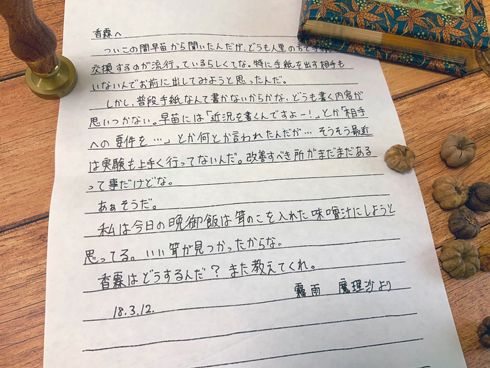 香霖へ
ついこの間早苗から聞いたんだが、どうも人里のほうで手紙
交換するのが流行っているらしくてな。特に手紙を出す相手も
いないんでお前に出してみようと思ったんだ。
しかし普段手紙なんて書かないからかな、どうも書く内容が
思いつかない。早苗には「近況を書くんですよー！」とか「相手
への要件を…」とか何とか言われたんだが… そうそう最近
は実験も上手く行ってないんだ。改善すべき所がまだまだある
って事だけどな。
あぁそうだ。
私は今日の晩御飯は茸のこを入れた味噌汁にしようと
思ってる。いい茸が見つかったからな。
香霖はどうするんだ？また教えてくれ。
18.3.12.
霧雨 魔理沙より